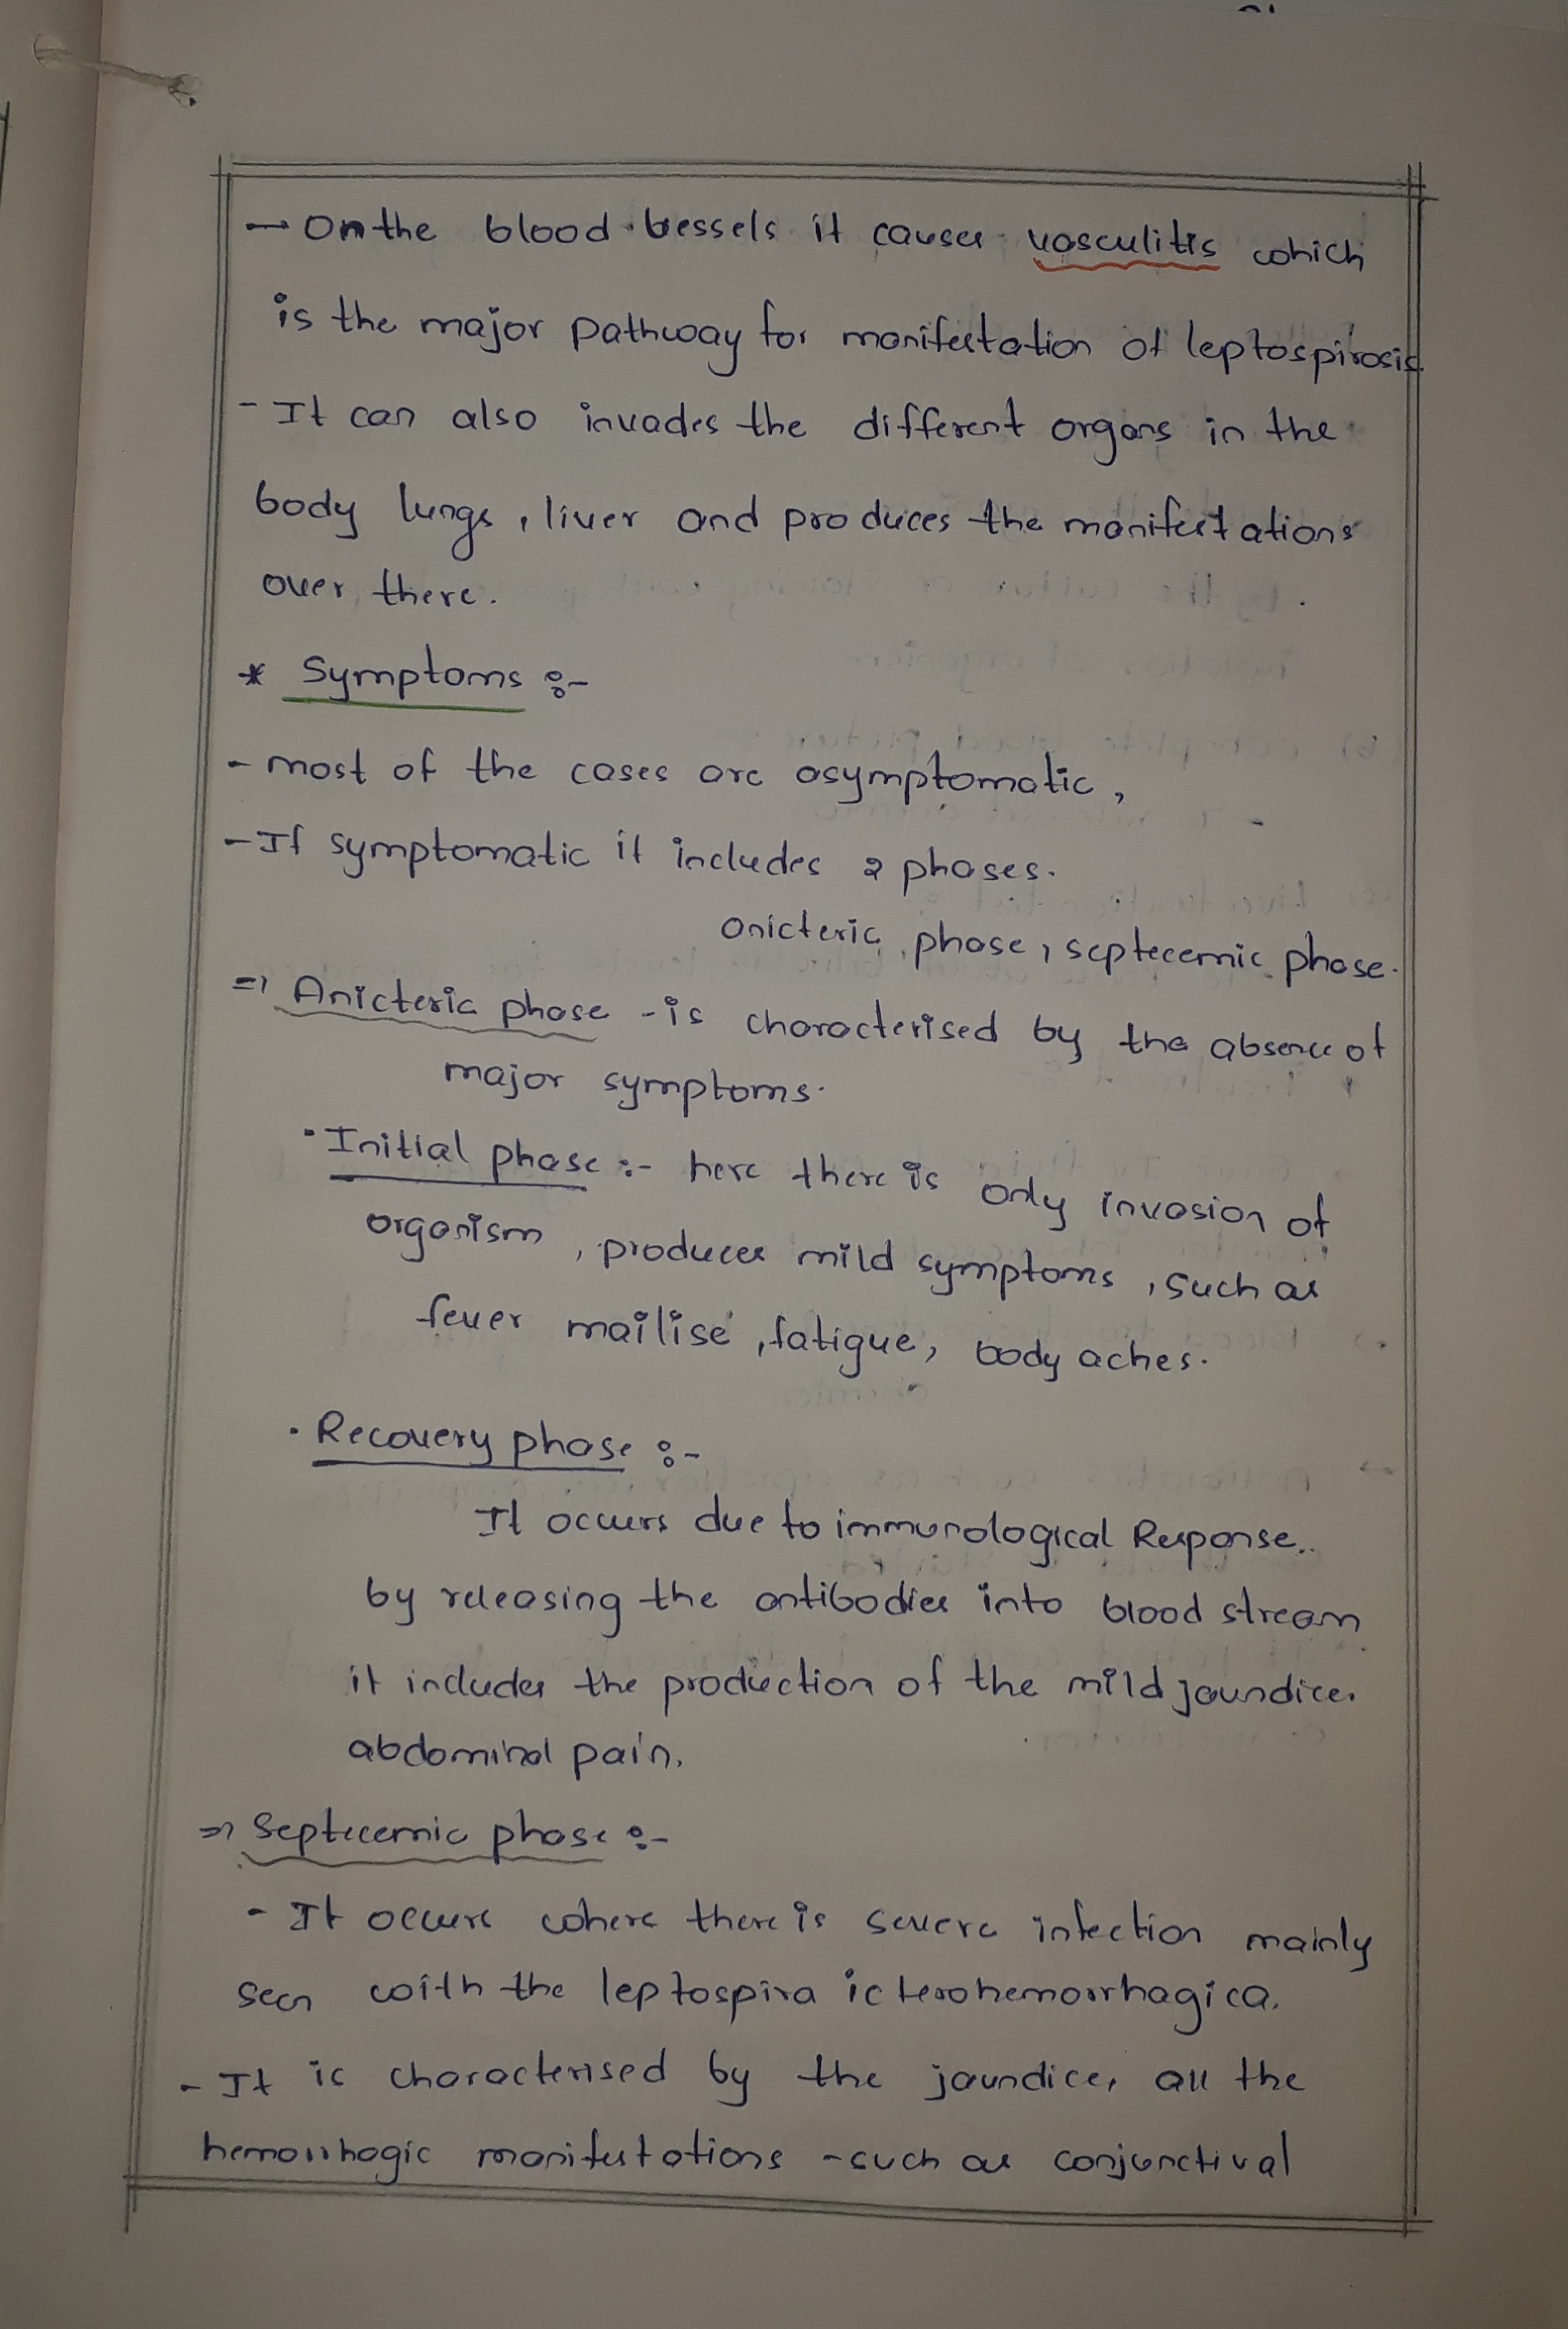 → On the blood vessels it causes vasculitis which
is the major pathway for manifestation of leptospirosis.
- It can also invades the different organs in the
body lungs, liver and produces the manifestations
over there.
* Symptoms :-
- most of the cases are asymptomatic,
- If symptomatic it includes 2 phases.
anicteric phase, septecemic phase.
⇒ Anicteric phase - is characterised by the absence of
major symptoms.
• Initial phase :- here there is only invasion of
organism, produces mild symptoms, such as
fever mailise, fatigue, body aches.
• Recovery phase :-
It occurs due to immunological Response..
by releasing the antibodies into blood stream
it includes the production of the mild jaundice.
abdominal pain.
⇒ Septecemic phase :-
- It occurs where there is severe infection mainly
seen with the leptospira icterohemorrhagica.
- It is characterised by the jaundice, all the
hemorrhagic manifestations - such as conjunctival